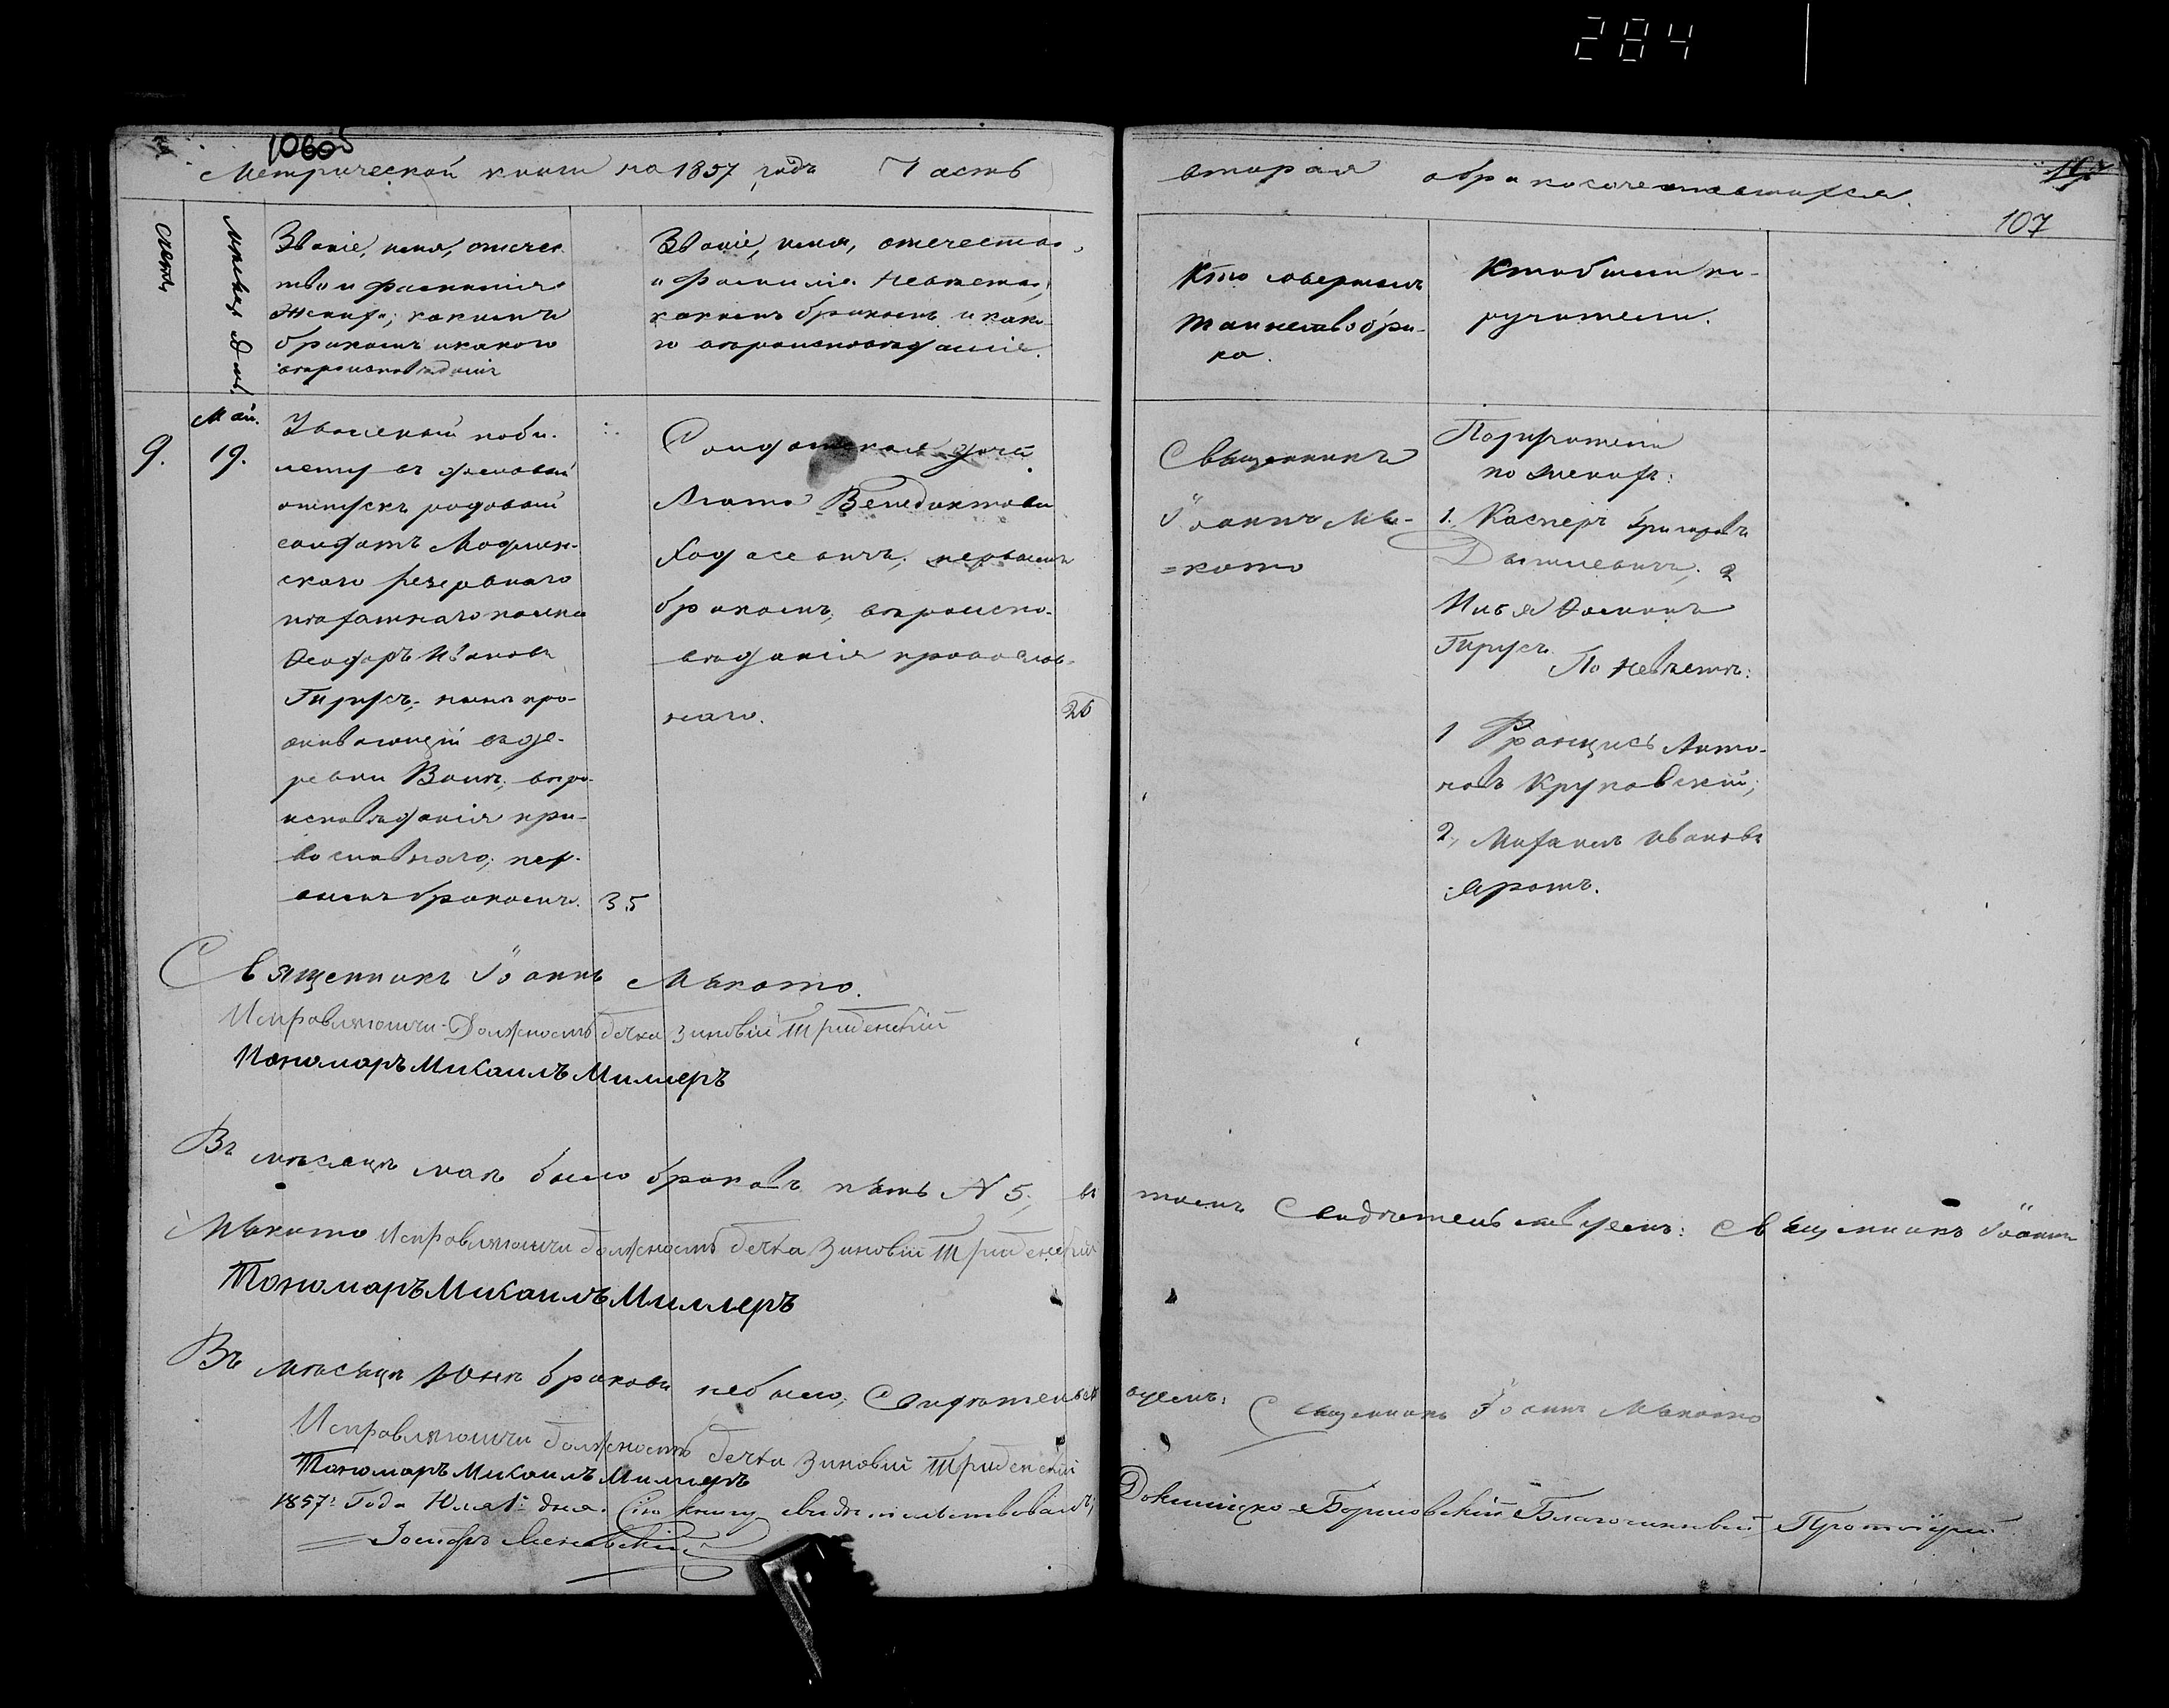 284
1060
Метрической книги на 1857 годъ Часть
вторая о бракосочетавшихся.
107
Счетъ
Мѣсяцъ и День
Званіе, имя, отчес
тво и фамилія
жениха; какимъ
бракомъ и какого
вѣроисповѣданія
Званіе, имя, отчество,
и фамилія невѣсты,
какимъ бракомъ и како
го вѣроисповѣданія.
Кто совершалъ
таинство бра-
ка.
Кто были по-
ручители.
Май.
9.
19.
Уволеный по би-
лету въ
отпускъ рядовый
солдатъ Модлин-
скаго резервнаго
пѣхотнаго полка
Феодоръ Ивановъ
Гирусъ, нынѣ про-
живающій въ де-
ревни вѣро-
исповѣданія пра-
вославнаго, пер-
вымъ бракомъ.
35
Солдатская дочь
Агата Венедиктова
Ходасевичъ, первымъ
бракомъ, вѣроиспо-
вѣданія православ-
наго.
26
Священникъ
Іоаннъ Мя-
=кото
Поручители
по женихѣ:
1. Касперъ Григоровъ
2
Илья Фоминъ
Гирусъ
По невѣстѣ:
1 Францисъ Анто-
новъ Круковскій;
2, Михаилъ Ивановъ
Яротъ.
Священникъ Іоаннъ Мякото.
Исправляющи Должность дечка Зиновій
Пономаръ Микаилъ Миллеръ
Въ мѣсяцѣ маѣ было браковъ пять N 5; въ томъ Свидѣтельствуемъ: Священникъ Іоаннъ
Мякото Исправляющи должность дечка Зиновій
Пономаръ Микаилъ Миллеръ
Въ мѣсяцѣ Юнѣ браковъ небыло, Свидѣтельствуемъ: Священникъ Іоаннъ Мякото
Исправляющи должность дечка Зиновій
Пономаръ Микаилъ Миллеръ
1857: Года Юля 1: дня. Сію книгу свидѣтельствовалъ; Докшицко-Борисовскій Благочинный Протоіерей
Іосифъ